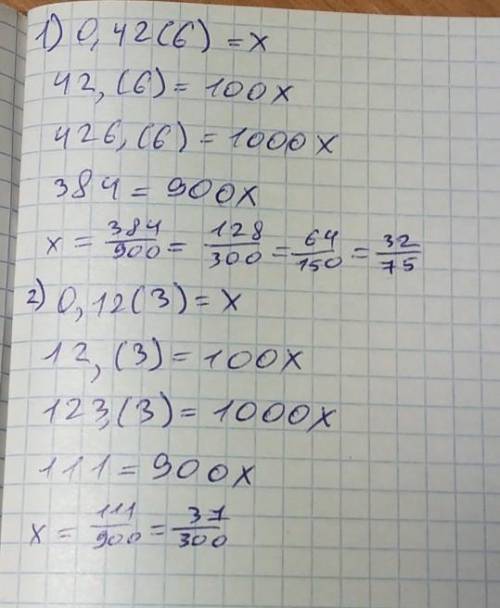 1) 0,42(6) = x
42,(6) = 100x
426,(6) = 1000x
384 = 900x
x = 384/900 = 128/300 = 64/150 = 32/75
2) 0,12(3) = x
12,(3) = 100x
123,(3) = 1000x
111 = 900x
x = 111/900 = 37/300